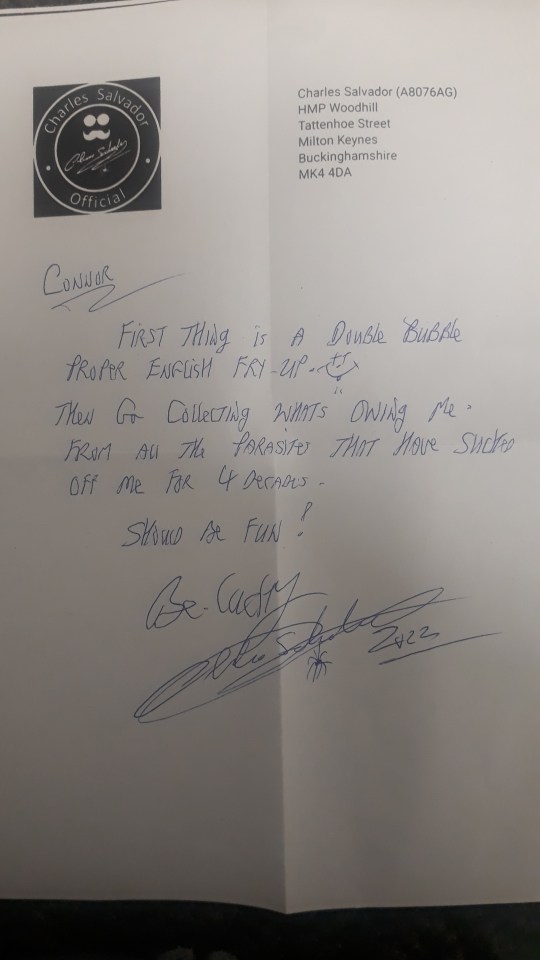 Charles Salvador
Official
Charles Salvador (A8076AG)
HMP Woodhill
Tattenhoe Street
Milton Keynes
Buckinghamshire
MK4 4DA
CONNOR
FIRST THING is A DOUBLE BUBBLE
PROPER ENGLISH FRY-UP.
THEN GO COLLECTING WHATS OWING ME.
FROM All THE PARASITES THAT HAVE SUCKED
OFF ME FOR 4 DECADES.
SHOULD BE FUN!
Be-Lucky
2023